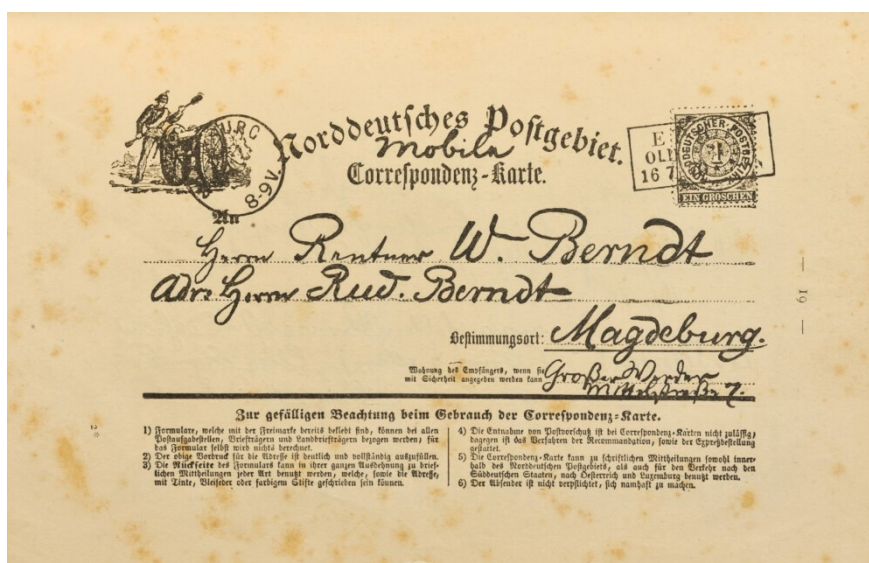 Norddeutsches Postgebiet.
Mobile
Correspondenz-Karte.
URG
8-9 V.
E
OLD
16 7
NORDDEUTSCHER POSTBEZIRK
1
EIN GROSCHEN
An
Herrn Rentner W. Berndt
Adr: Herrn Rud. Berndt
Bestimmungsort: Magdeburg.
Wohnung des Empfängers, wenn sie
mit Sicherheit angegeben werden kann
Großer Werder
Mittelstraße 7.
— 19 —
Zur gefälligen Beachtung beim Gebrauch der Correspondenz-Karte.
1) Formulare, welche mit der Freimarke bereits beklebt sind, können bei allen
Postaufgabestellen, Briefträgern und Landbriefträgern bezogen werden; für
das Formular selbst wird nichts berechnet.
2) Der obige Vordruck für die Adresse ist deutlich und vollständig auszufüllen.
3) Die Rückseite des Formulars kann in ihrer ganzen Ausdehnung zu brief-
lichen Mittheilungen jeder Art benutzt werden, welche, sowie die Adresse,
mit Tinte, Bleifeder oder farbigem Stifte geschrieben sein können.
4) Die Entnahme von Postvorschuß ist bei Correspondenz-Karten nicht zulässig;
dagegen ist das Verfahren der Recommandation, sowie der Expreßbestellung
gestattet.
5) Die Correspondenz-Karte kann zu schriftlichen Mittheilungen sowohl inner-
halb des Norddeutschen Postgebiets, als auch für den Verkehr nach den
Süddeutschen Staaten, nach Oesterreich und Luxemburg benutzt werden.
6) Der Absender ist nicht verpflichtet, sich namhaft zu machen.
2*